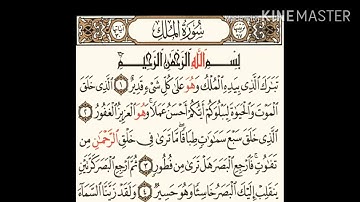 KINEMASTER
سُورَةُ الْمُلْكِ
بِسْمِ اللَّهِ الرَّحْمَٰنِ الرَّحِيمِ
تَبَارَكَ الَّذِي بِيَدِهِ الْمُلْكُ وَهُوَ عَلَىٰ كُلِّ شَيْءٍ قَدِيرٌ ١ الَّذِي خَلَقَ
الْمَوْتَ وَالْحَيَاةَ لِيَبْلُوَكُمْ أَيُّكُمْ أَحْسَنُ عَمَلًا وَهُوَ الْعَزِيزُ الْغَفُورُ ٢
الَّذِي خَلَقَ سَبْعَ سَمَاوَاتٍ طِبَاقًا مَا تَرَىٰ فِي خَلْقِ الرَّحْمَٰنِ مِنْ
تَفَاوُتٍ فَارْجِعِ الْبَصَرَ هَلْ تَرَىٰ مِنْ فُطُورٍ ٣ ثُمَّ ارْجِعِ الْبَصَرَ كَرَّتَيْنِ
يَنْقَلِبْ إِلَيْكَ الْبَصَرُ خَاسِئًا وَهُوَ حَسِيرٌ ٤ وَلَقَدْ زَيَّنَّا السَّمَاءَ